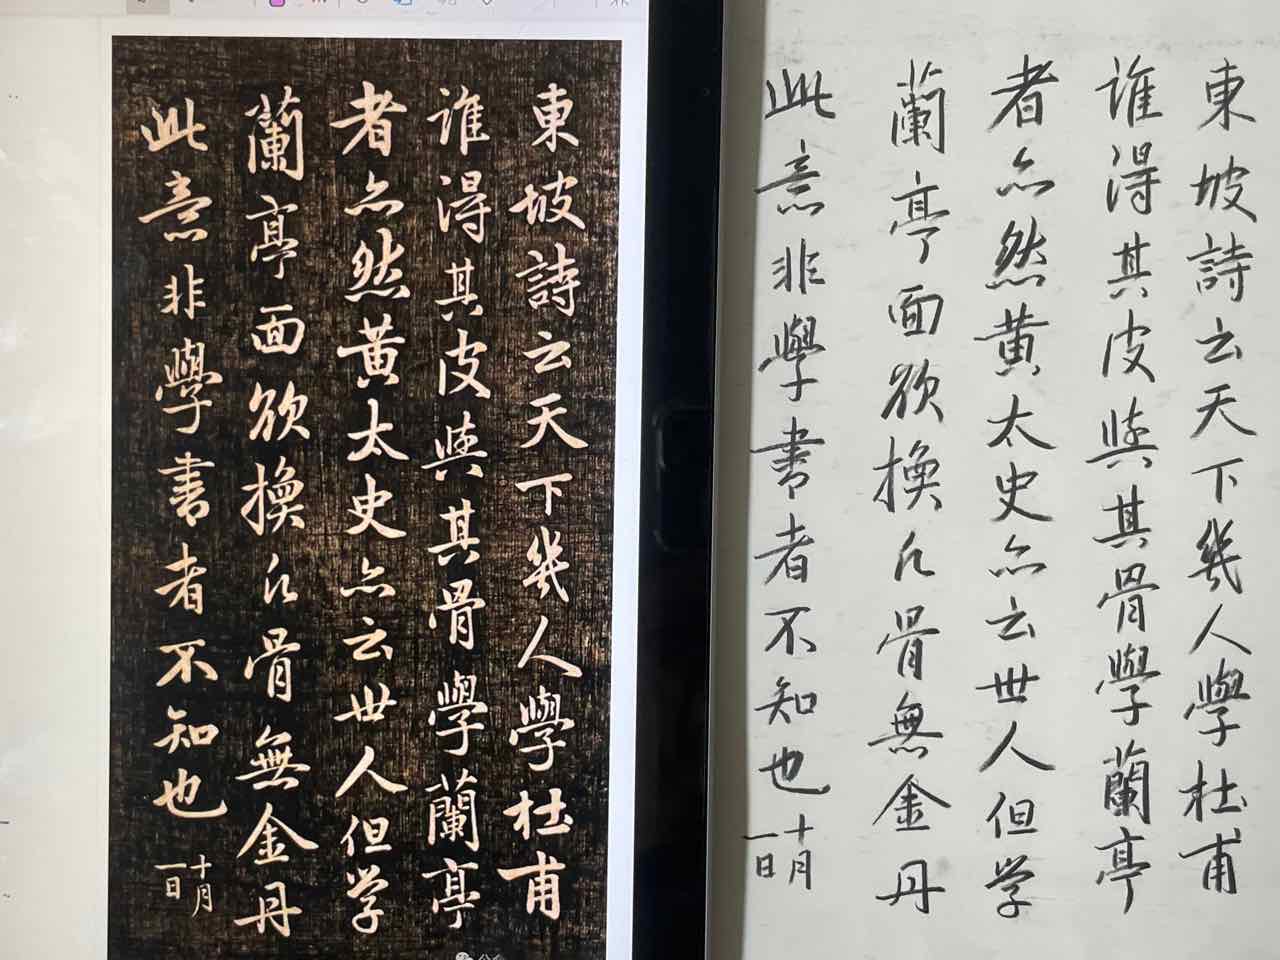 東坡詩云天下幾人學杜甫
誰得其皮與其骨學蘭亭
者亦然黄太史亦云世人但学
蘭亭面欲換凡骨無金丹
此意非學書者不知也
十月
一日
東坡詩云天下幾人學杜甫
誰得其皮與其骨學蘭亭
者亦然黄太史亦云世人但学
蘭亭面欲換凡骨無金丹
此意非學書者不知也
十月
一日